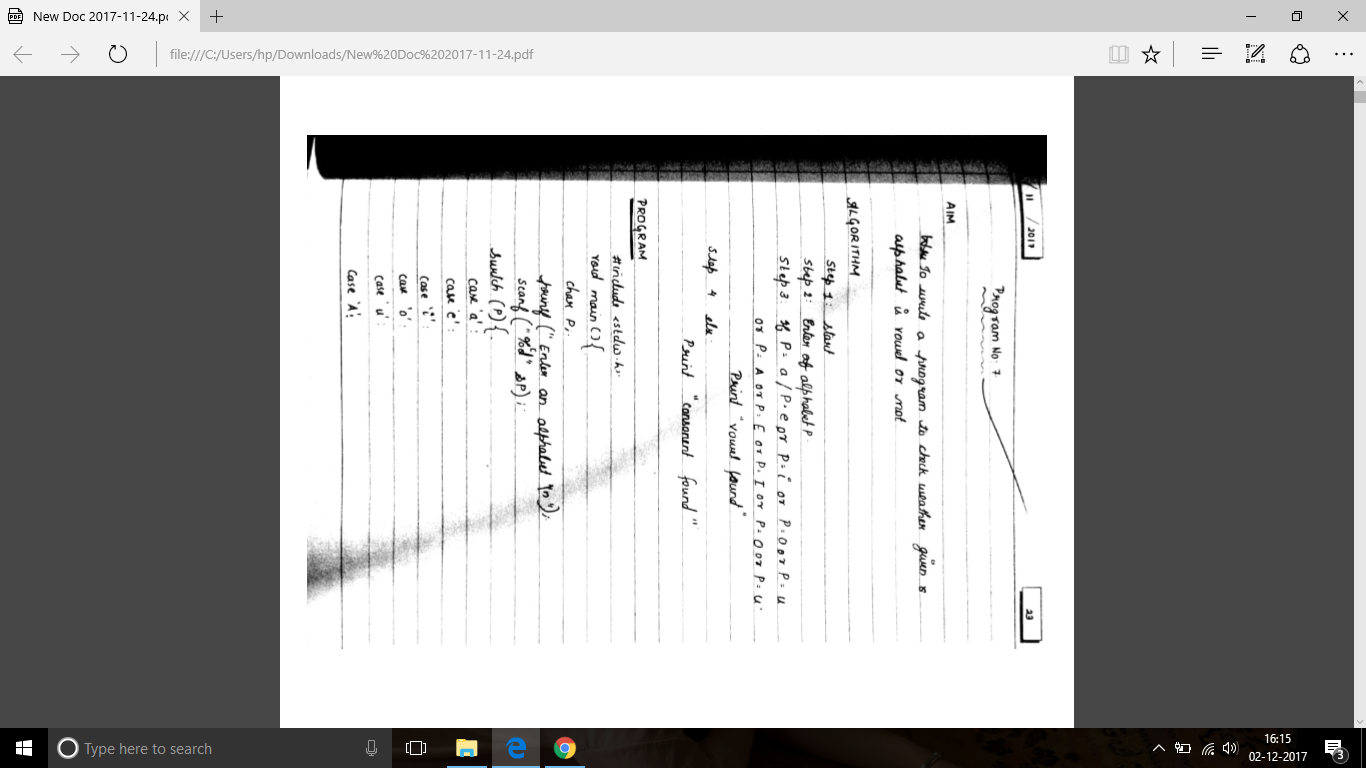 New Doc 2017-11-24.pd
file:///C:/Users/hp/Downloads/New%20Doc%202017-11-24.pdf
11 / 2017
23
Program No: 7
AIM
To write a program to check weather given
alphabet is vowel or not
ALGORITHM
Step 1: start
Step 2: Enter alphabet P.
Step 3: If P = a / P = e or P = i or P = o or P = u
or P = A or P = E or P = I or P = O or P = U.
Print "vowel found"
Step 4 else:
Print "consonent found".
PROGRAM
#include <stdio.h>
void main () {
char P;
printf (" Enter an alphabet \n");
scanf ("% &P);
switch (P) {
case 'a':
case 'e':
case 'i':
case 'o':
case 'u':
case 'A':
Type here to search
16:15
02-12-2017
3